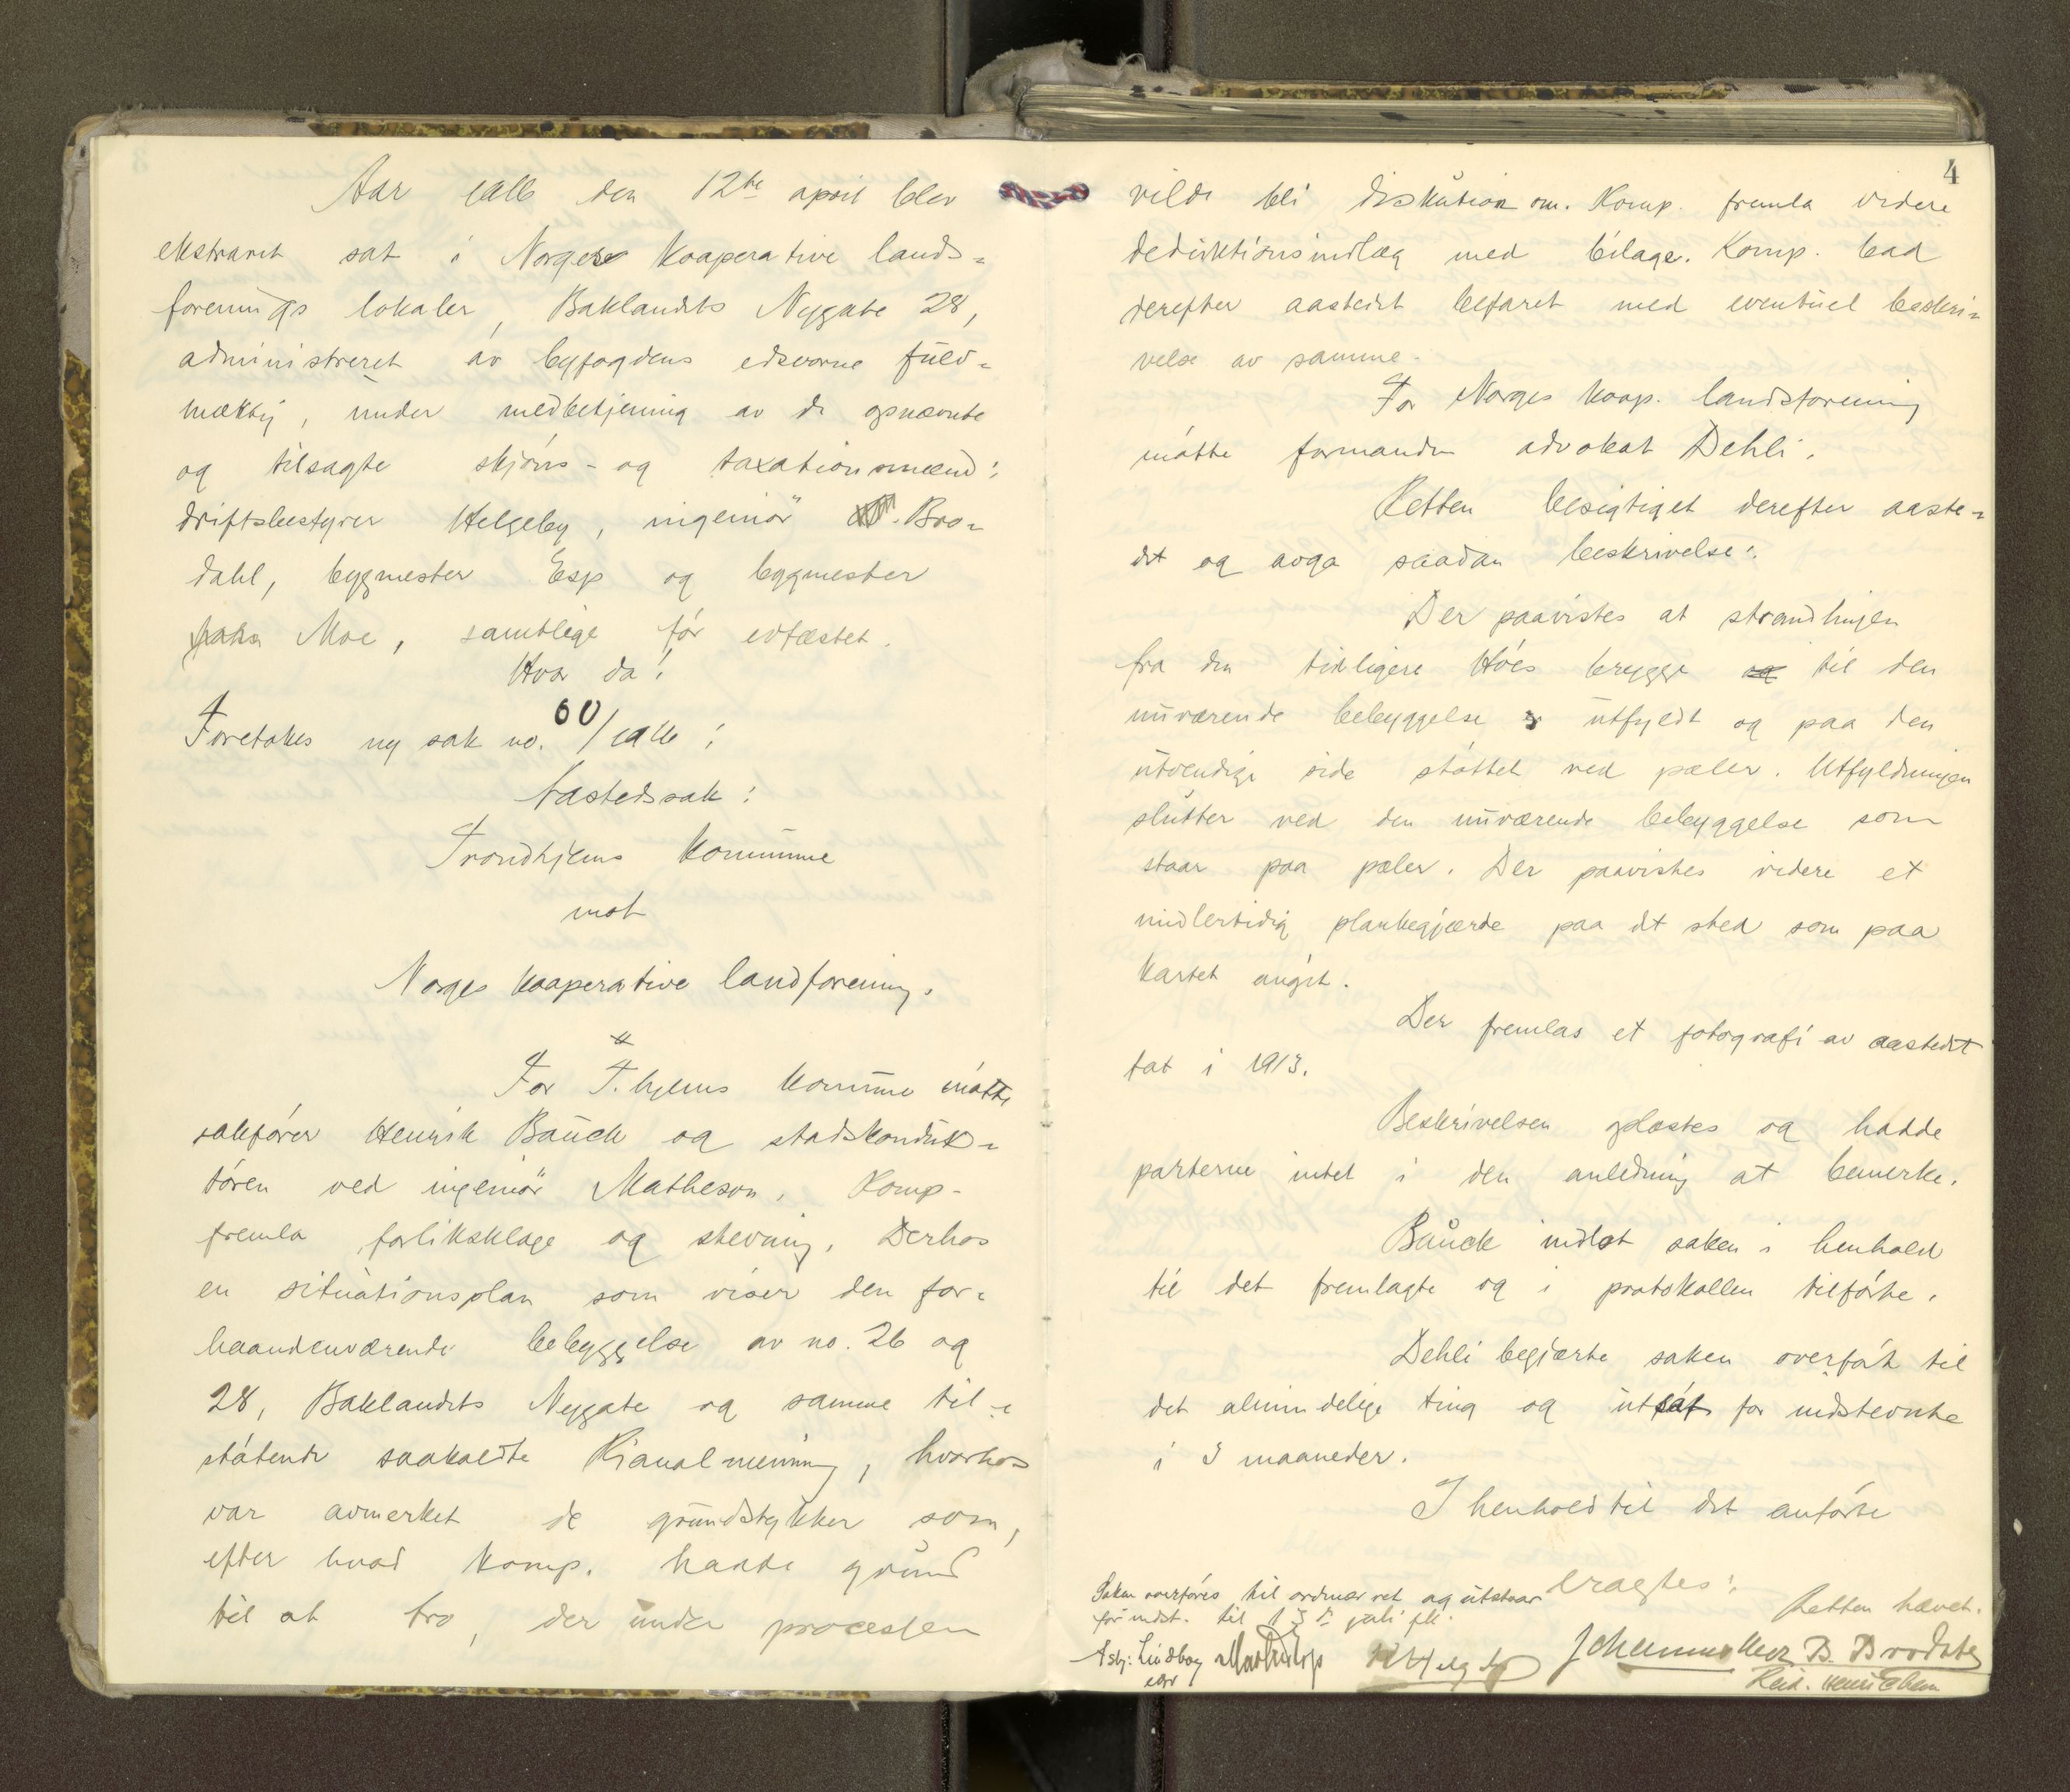 Aar 1916 den 12te april blev
ekstraret sat i Norges Kooperative lands-
forenings lokaler, Baklandets Nygate 28,
administreret av byfogdens edsvorne fuld-
mæktig, under medbetjening av de opnævnte
og tilsagte skjöns- og taxationsmænd:
driftsbestyrer Helgeby, ingeniör Bro-
dahl, bygmester Esp og bygmester
Moe, samtlige för edfæstet.
Hvor da:
Foretokes ny sak no. 60/1916:
Aastedssak:
Trondhjems Kommune
mot
Norges kooperative landforening.
For T.hjems Kommune mötte
sakförer Henrik Bauck og stadskonduk-
tören ved ingeniör Matheson. Komp.
fremla forliksklage og stevning. Derhos
en situationsplan som viser den for-
haandenværende bebyggelse av no. 26 og
28, Baklandets Nygate og samme til-
stötende saakaldte Kjanalmenning, hvorhos
var avmerket de grundstykker som,
efter hvad komp. hadde grund
til at tro, der under processen
4
vilde bli diskution om. Komp. fremla videre
deduktionsindlæg med bilage. Komp. bad
derefter aastedet befaret med eventuel beskri-
velse av samme.
For Norges koop. landsforening
mötte formanden advokat Dehli.
Retten besigtiget derefter aaste-
det og avga saadan beskrivelse:
Der paavistes at strandlinjen
fra den tidligere Höes brygge og til den
nuværende bebyggelse er utfyldt og paa den
utvendige side stöttet ved pæler. Utfyldningen
slutter ved den nuværende bebyggelse som
staar paa pæler. Der paavistes videre et
midlertidig plankegjærde paa det sted som paa
kartet angit.
Der fremlas et fotografi av aastedet
tat i 1913.
Beskrivelsen oplæstes og hadde
parterne intet i den anledning at bemerke.
Bauck indlot saken i henhold
til det fremlagte og i protokollen tilförte.
Dehli begjærte saken overfört til
det almindelige ting og utsat for indstevnte
i 3 maaneder.
I henhold til det anförte
eragtes:
Saken overföres til ordinær ret og utstaar
for indst. til 13de juli .
Retten hævet.
Asbj. Lindbog
Johannes Moe B. Brodahl
Reid. Henrichsen